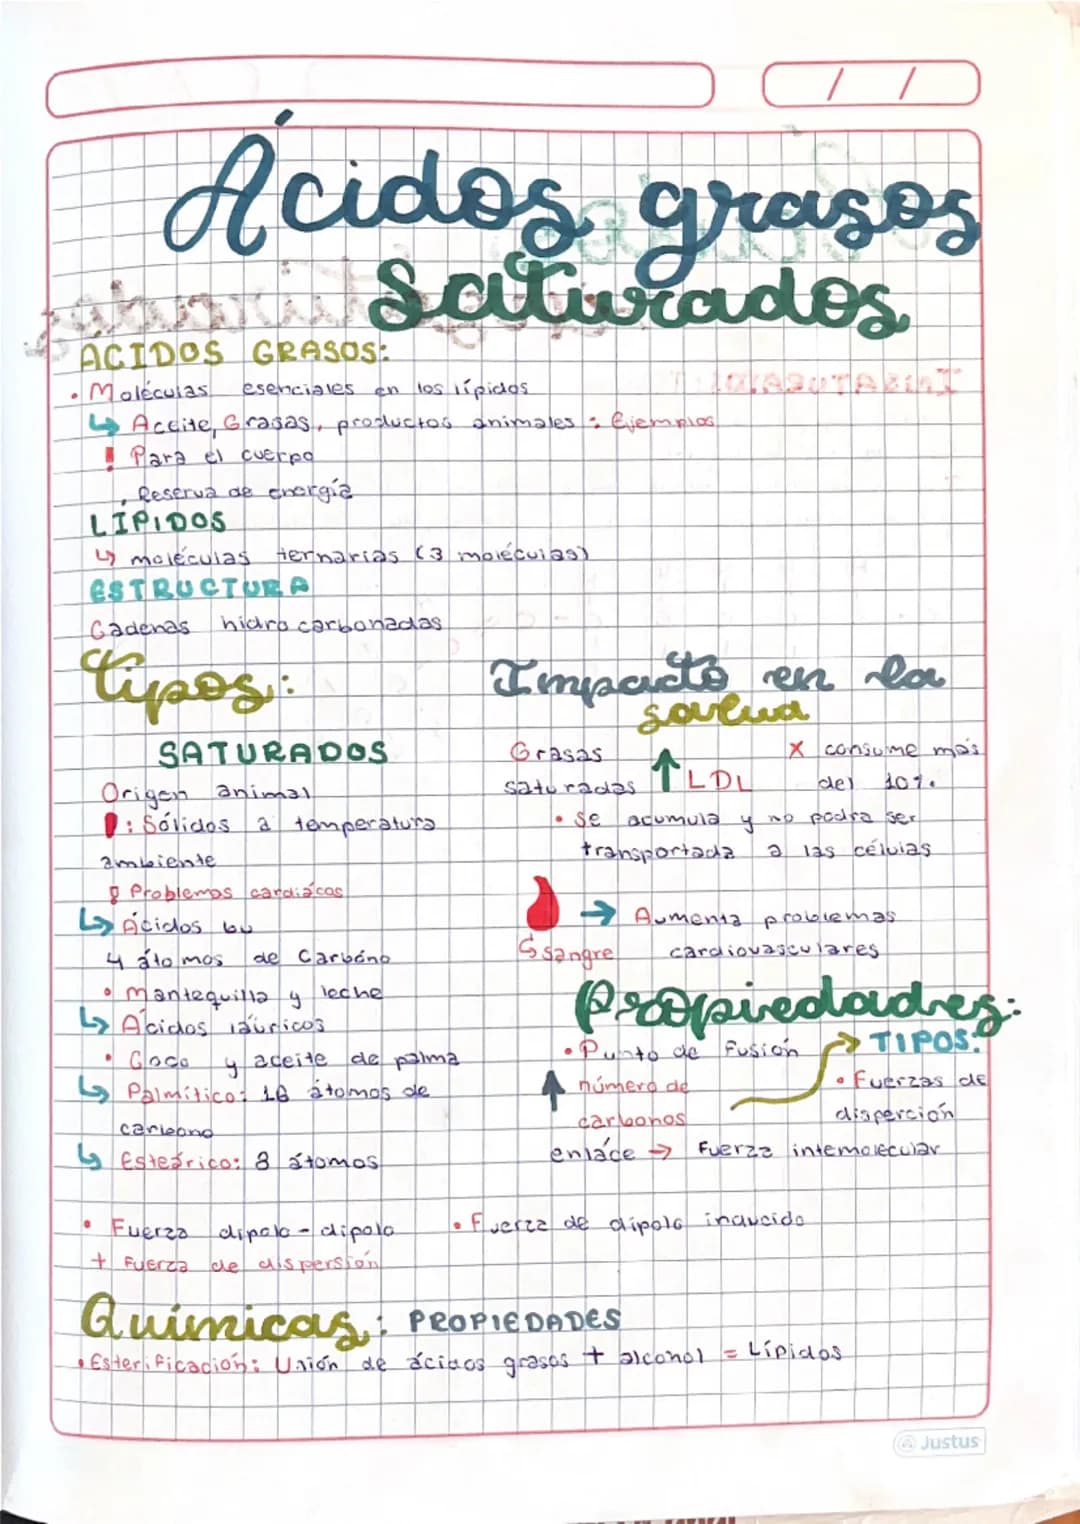 Ácidos grasos
Saturados
ÁCIDOS GRASOS:
• Moléculas esenciales en los lípidos
↳ Aceite, Grasas, productos animales : Ejemplos
! Para el cuerpo
• Reserva de energía
LÍPIDOS
↳ moléculas ternarias (3 moléculas)
ESTRUCTURA
Cadenas hidrocarbonadas
Tipos:
SATURADOS
Origen animal
! : Sólidos a temperatura
ambiente
Problemas cardiácos
↳ Ácidos bu
4 átomos de Carbóno
• Mantequilla y leche
↳ Ácidos láuricos
• Coco y aceite de palma
↳ Palmítico: 16 átomos de
carbono
↳ Esteárico: 8 átomos
Impacto en la
salud
Grasas
saturadas ↑ LDL
X consume más
del 10%
• Se acumula y no podra ser
transportada a las células
→ Aumenta problemas
cardiovasculares
↳ sangre
Propiedades:
• Punto de Fusión
↑ número de
carbonos
enláce → Fuerza intemolecular
→ TIPOS:
• Fuerzas de
disperción
• Fuerza dipolo - dipolo
+ Fuerza de dispersión
• Fuerza de dipolo inducido
Químicas: PROPIEDADES
• Esterificación: Unión de ácidos grasos + alcohol = Lípidos
Justus